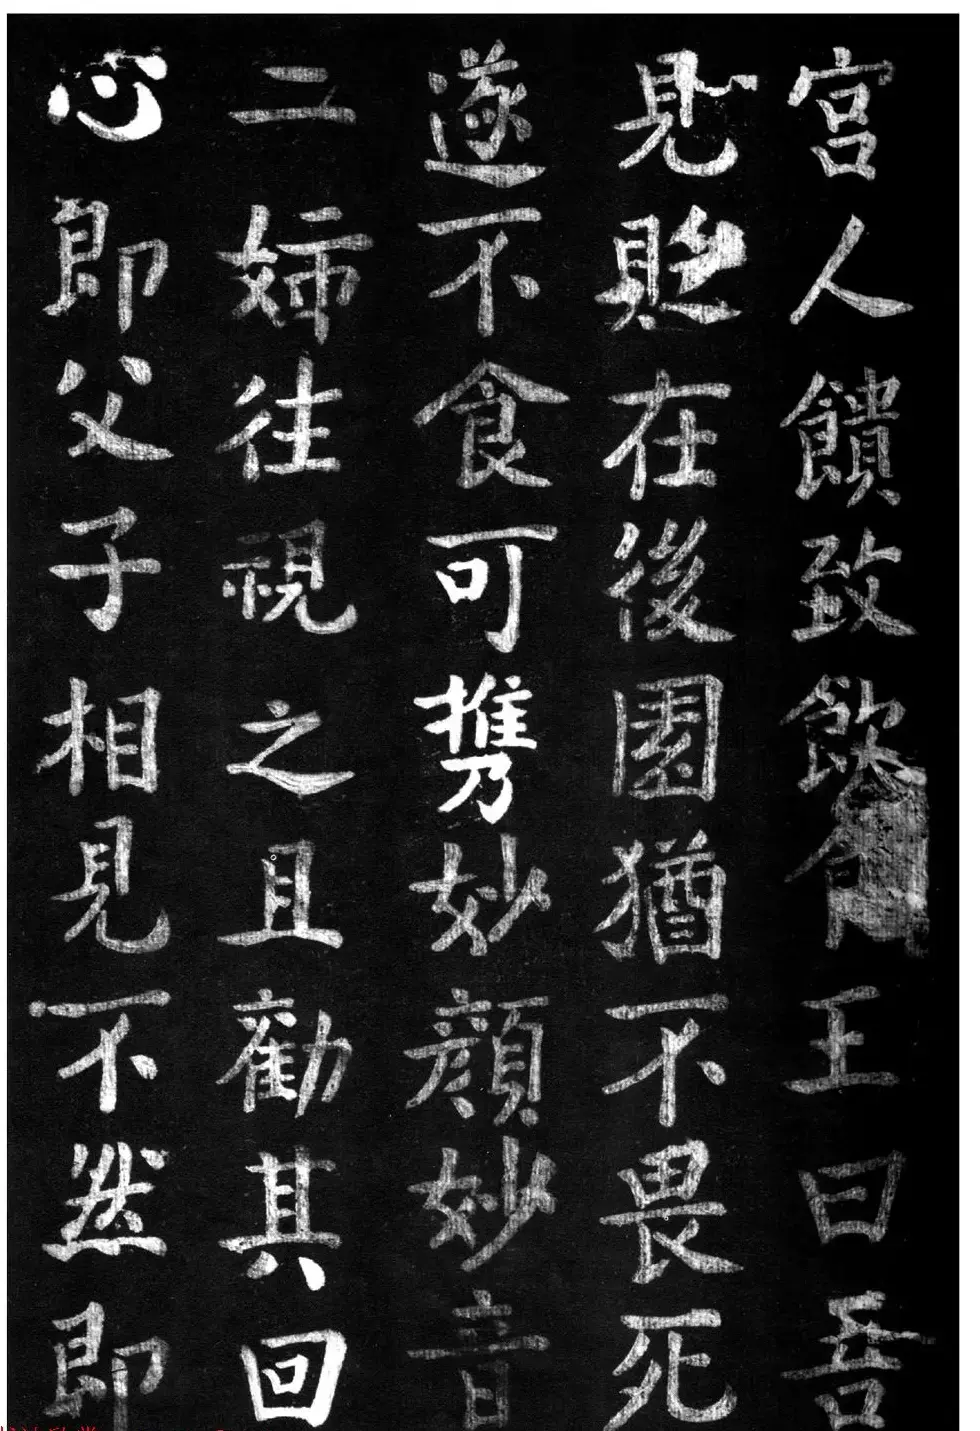 宮人饋致飲食王曰吾
見貶在後園猶不畏死
遂不食可攜妙顏妙音
二姉往視之且勸其回
心即父子相見不然即